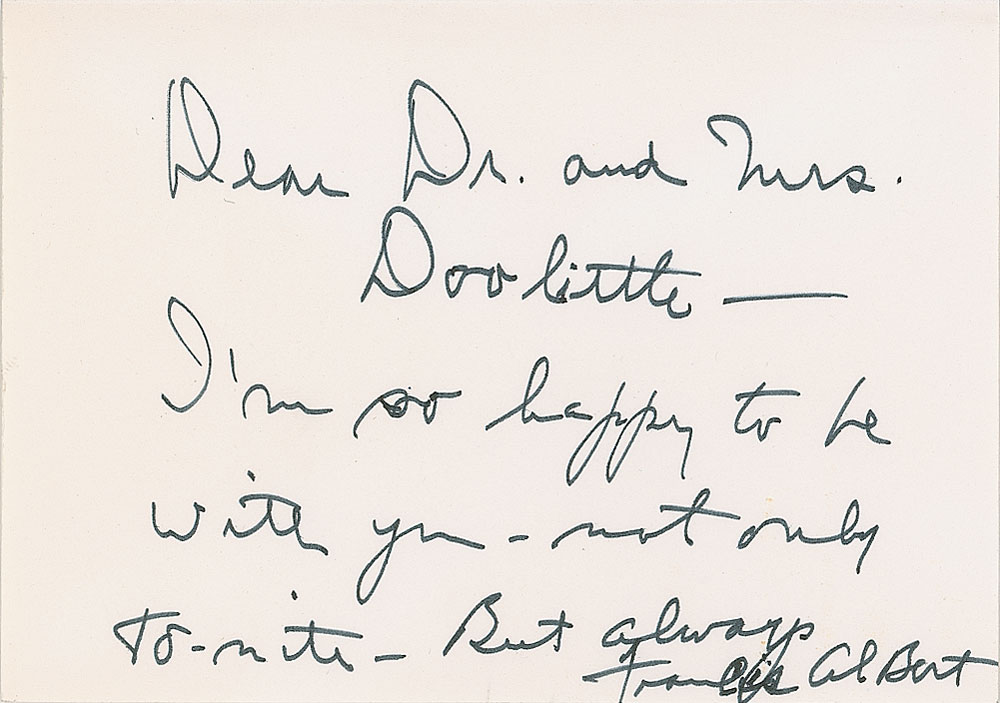 Dear Dr. and Mrs.
Doolittle —
I'm so happy to be
with you - not only
to-nite - But always
Francis AlBert